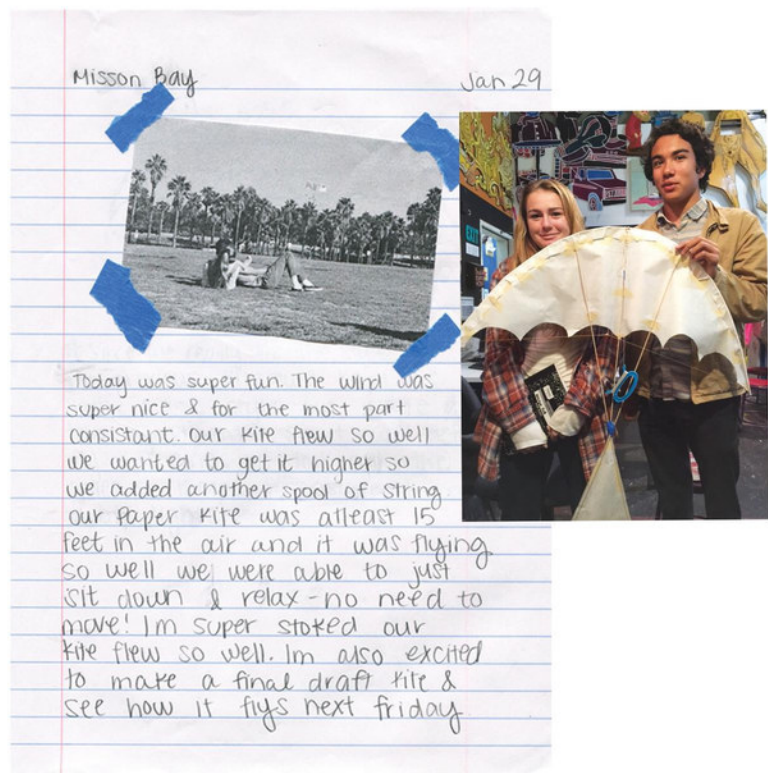 Misson Bay
Jan 29
EXIT
Today was super fun. The wind was
super nice & for the most part
consistant. Our kite flew so well
we wanted to get it higher so
we added another spool of string.
our paper kite was atleast 15
feet in the air and it was flying
so well we were able to just
sit down & relax - no need to
move! Im super stoked our
kite flew so well. Im also excited
to make a final draft kite &
see how it flys next friday